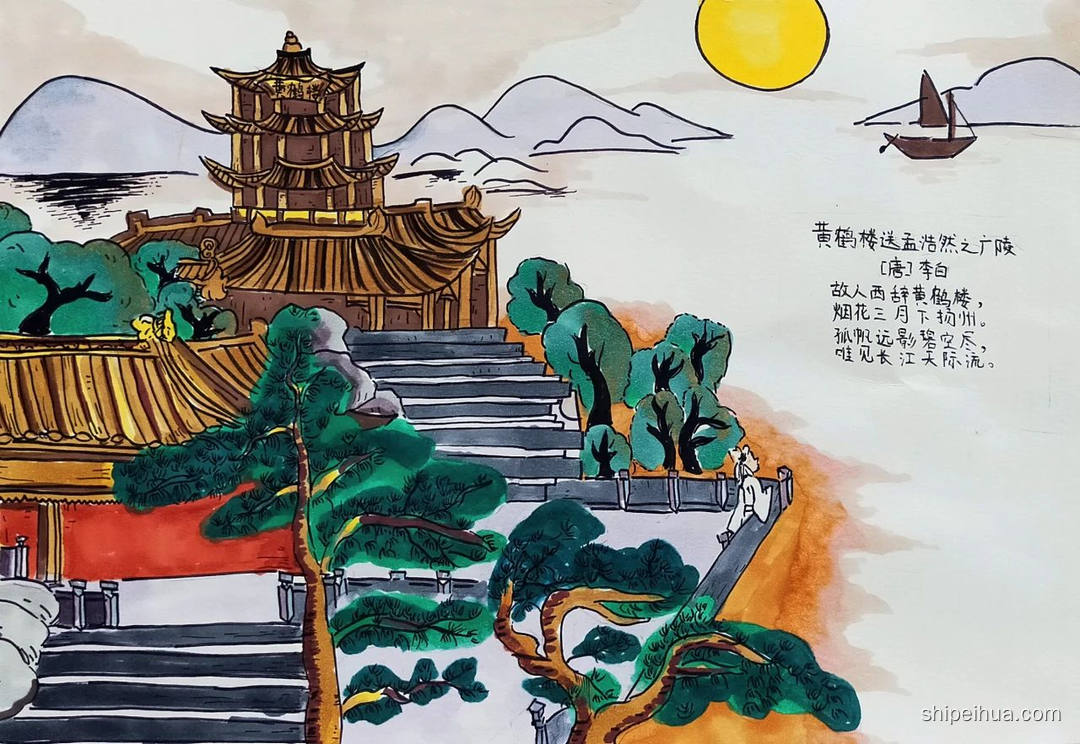 黄鹤楼
黄鹤楼送孟浩然之广陵
[唐] 李白
故人西辞黄鹤楼，
烟花三月下扬州。
孤帆远影碧空尽，
唯见长江天际流。
shipeihua.com